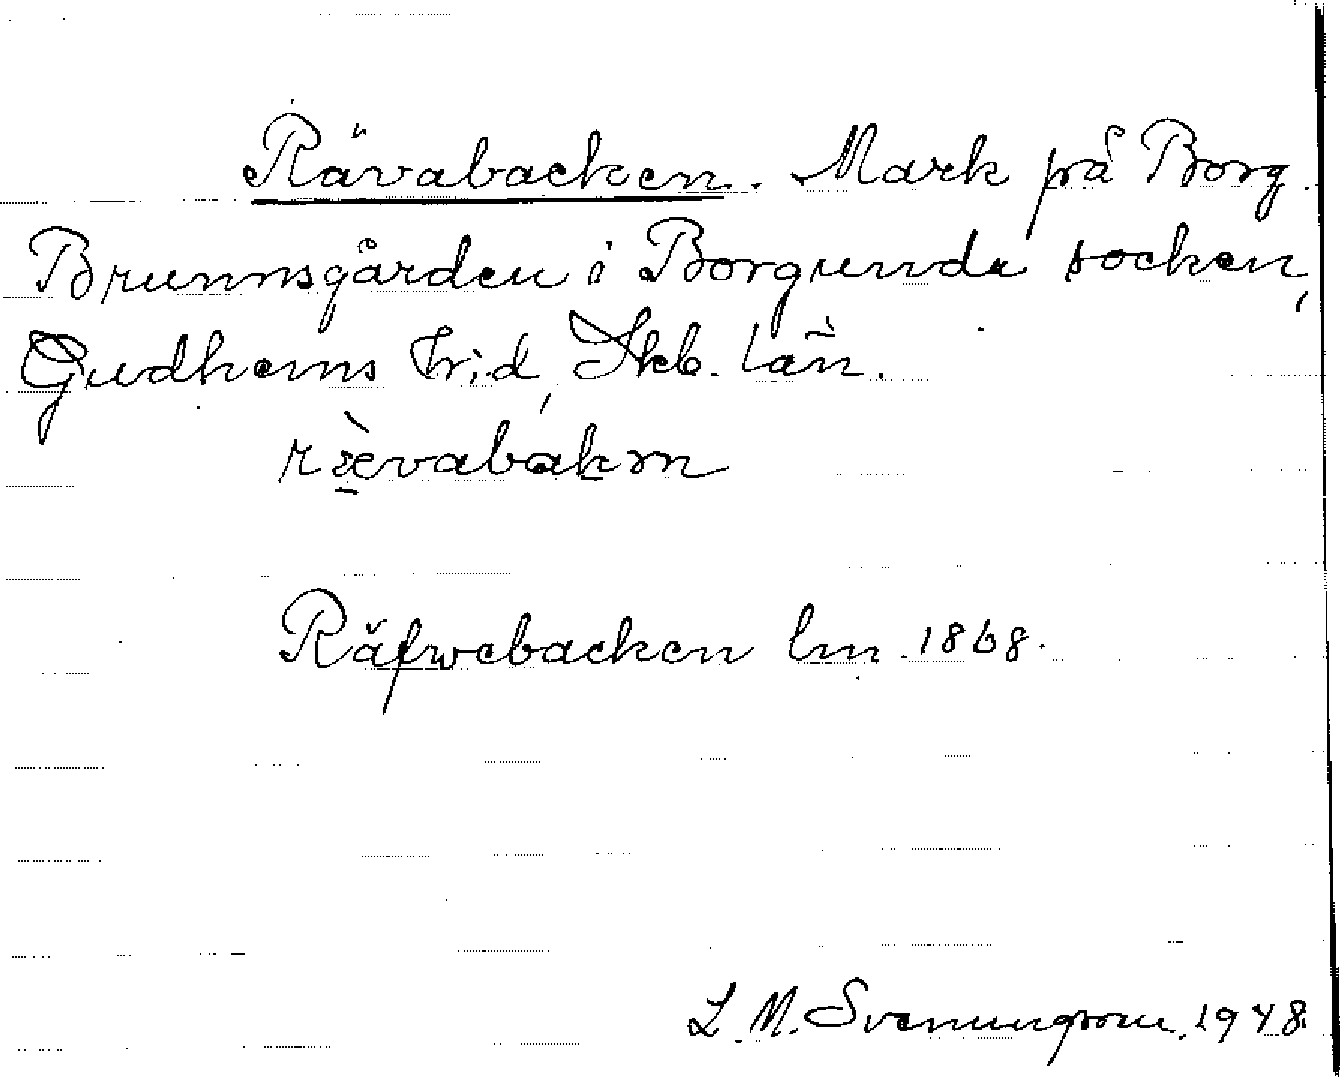 Rävabacken. Mark på Borg
Brunnsgården i Borgunda socken,
Gudhems hrd, Skb. län.
rævabakın
Räfwebacken lm 1868.
L. M. Svenungsson. 1948